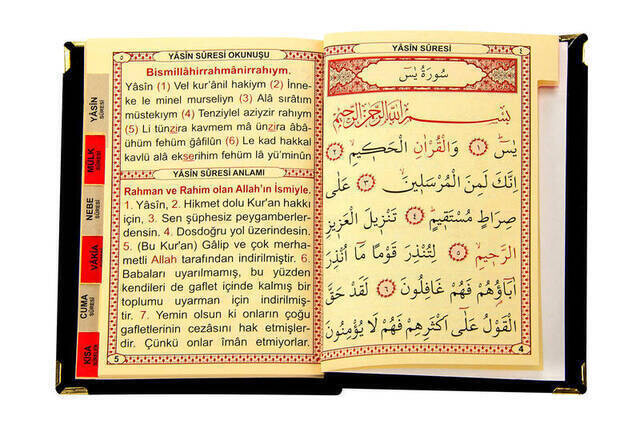 YÂSİN SÛRESİ
٤
سُورَةُ يٰسٓ
بِسْمِ اللّٰهِ الرَّحْمٰنِ الرَّحِيمِ
يٰسٓ ﴿١﴾ وَالْقُرْاٰنِ الْحَكِيمِ ﴿٢﴾
اِنَّكَ لَمِنَ الْمُرْسَلِينَ ﴿٣﴾ عَلٰى
صِرَاطٍ مُسْتَقِيمٍ ﴿٤﴾ تَنْزِيلَ الْعَزِيزِ
الرَّحِيمِ ﴿٥﴾ لِتُنْذِرَ قَوْمًا مَٓا اُنْذِرَ
اٰبَٓاؤُهُمْ فَهُمْ غَافِلُونَ ﴿٦﴾ لَقَدْ حَقَّ
الْقَوْلُ عَلٰٓى اَكْثَرِهِمْ فَهُمْ لَا يُؤْمِنُونَ
4
٥
YÂSİN SÛRESİ OKUNUŞU
Bismillâhirrahmânirrahıym.
Yâsîn (1) Vel kur'ânil hakiym (2) İnne-
ke le minel murseliyn (3) Alâ sırâtım
müstekıym (4) Tenziylel aziyzir rahıym
(5) Li tünzira kavmem mâ ünzira âbâ-
ühüm fehüm ğâfilûn (6) Le kad hakkal
kavlü alâ ekserihim fehüm lâ yü'minûn
YÂSİN SÛRESİ ANLAMI
Rahman ve Rahim olan Allah'ın İsmiyle.
1. Yâsîn, 2. Hikmet dolu Kur'an hakkı
için, 3. Sen şüphesiz peygamberler-
densin. 4. Dosdoğru yol üzerindesin.
5. (Bu Kur'an) Gâlip ve çok merha-
metli Allah tarafından indirilmiştir. 6.
Babaları uyarılmamış, bu yüzden
kendileri de gaflet içinde kalmış bir
toplumu uyarman için indirilmiş-
tir. 7. Yemin olsun ki onların çoğu
gafletlerinin cezâsını hak etmişler-
dir. Çünkü onlar îmân etmiyorlar.
5
YÂSİN
SÛRESİ
MÜLK
SÛRESİ
NEBE
SÛRESİ
VÂKIA
SÛRESİ
CUMA
SÛRESİ
KISA
SÛRELER